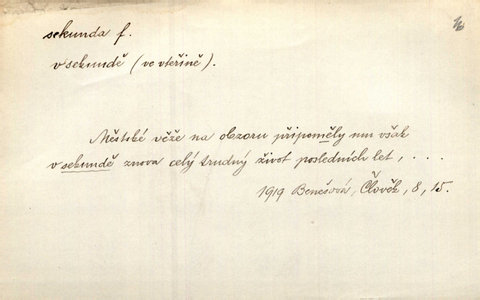 sekunda f.
v sekundě (ve vteřině).
Městské věže na obzoru připoměly mu však
v sekundě znova celý trudný život posledních let, . . .
1919 Benešová, Člověk, 8, 15.